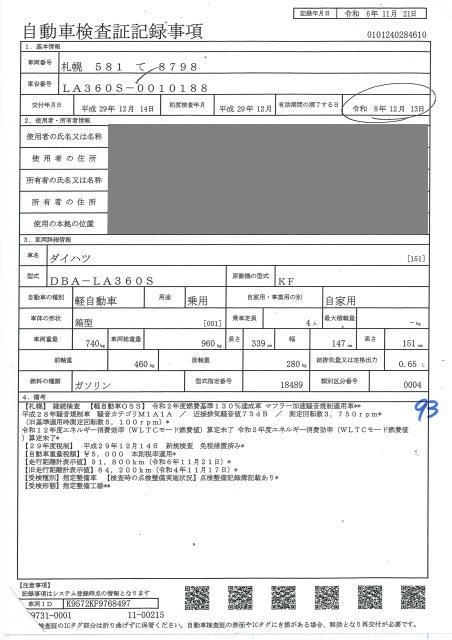 記録年月日 令和 6年11月 21日
自動車検査証記録事項
0101240284610
1．基本情報
車両番号 札幌 581 て 8798
車台番号 LA360S-0010188
交付年月日 平成 29年 12月 14日 初度検査年月 平成 29年 12月 有効期間の満了する日 令和 8年 12月 13日
2．使用者・所有者情報
使用者の氏名又は名称
使用者の住所
所有者の氏名又は名称
所有者の住所
使用の本拠の位置
3．車両詳細情報
車名 ダイハツ [151]
型式 DBA-LA360S 原動機の型式 KF
自動車の種別 軽自動車 用途 乗用 自家用・事業用の別 自家用
車体の形状 箱型 [001] 乗車定員 4人 最大積載量 -kg
車両重量 740kg 車両総重量 960kg 長さ 339cm 幅 147cm 高さ 151cm
前軸重 460kg 後軸重 280kg 総排気量又は定格出力 0.65 L
燃料の種類 ガソリン 型式指定番号 18489 類別区分番号 0004
4．備考
【札幌】 継続検査 【軽自動車OSS】 令和2年度燃費基準130%達成車 マフラー加速騒音規制適用車**
平成28年騒音規制車 騒音カテゴリM1A1A ／ 近接排気騒音値73dB ／ 測定回転数3，750rpm*
(旧基準適用時測定回転数5，100rpm)*
令和12年度エネルギー消費効率(WLTCモード燃費値)算定未了 令和2年度エネルギー消費効率(WLTCモード燃費値
)算定未了*
【29年度税制】 平成29年12月14日 新規検査 免税措置済み*
【自動車重量税額】￥5，000 本則税率適用*
【走行距離計表示値】91，800km(令和6年11月21日)*
【旧走行距離計表示値】64，200km(令和4年11月17日)*
【受検種別】指定整備車 【検査時の点検整備実施状況】点検整備記録簿記載あり*
【受検形態】指定整備工場**
93
【注意事項】
記録事項はシステム登録時点の情報となります
車両ID K9572KF9768497
9731-0001 11-00215
検査証のICタグ部分は折り曲げずに保管ください。自動車検査証の券面やICタグにき損がある場合、無効となり再交付が必要です。